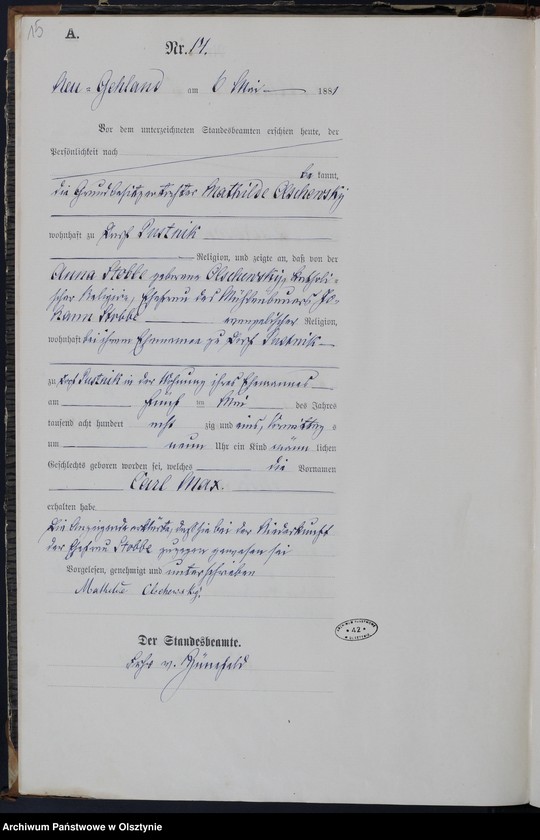 15
A.
Nr. 17.
Neu-Gehland am 6 Mai 1881
Vor dem unterzeichneten Standesbeamten erschien heute, der
Persönlichkeit nach
be kannt,
die Grundbesitzertochter Mathilde Olschewsky
wohnhaft zu Dorf Pustnik
Religion, und zeigte an, daß von der
Anna Stobbe geborene Olschewsky, katholi-
scher Religion, Ehefrau des Mühlenbauers Jo-
hann Stobbe evangelischer Religion,
wohnhaft bei ihrem Ehemanne zu Dorf Pustnik
zu Dorf Pustnik in der Wohnung ihres Ehemannes
am fünf ten Mai des Jahres
tausend acht hundert acht zig und eins, Vormittag s
um neun Uhr ein Kind männ lichen
Geschlechts geboren worden sei, welches die Vornamen
Carl Max.
erhalten habe
Die Anzeigende erklärte, daß sie bei der Niederkunft
der Ehefrau Stobbe zugegen gewesen sei
Vorgelesen, genehmigt und unterschrieben
Mathilde Olschewsky.
Der Standesbeamte.
v. Hünefeld
42
Archiwum Państwowe w Olsztynie